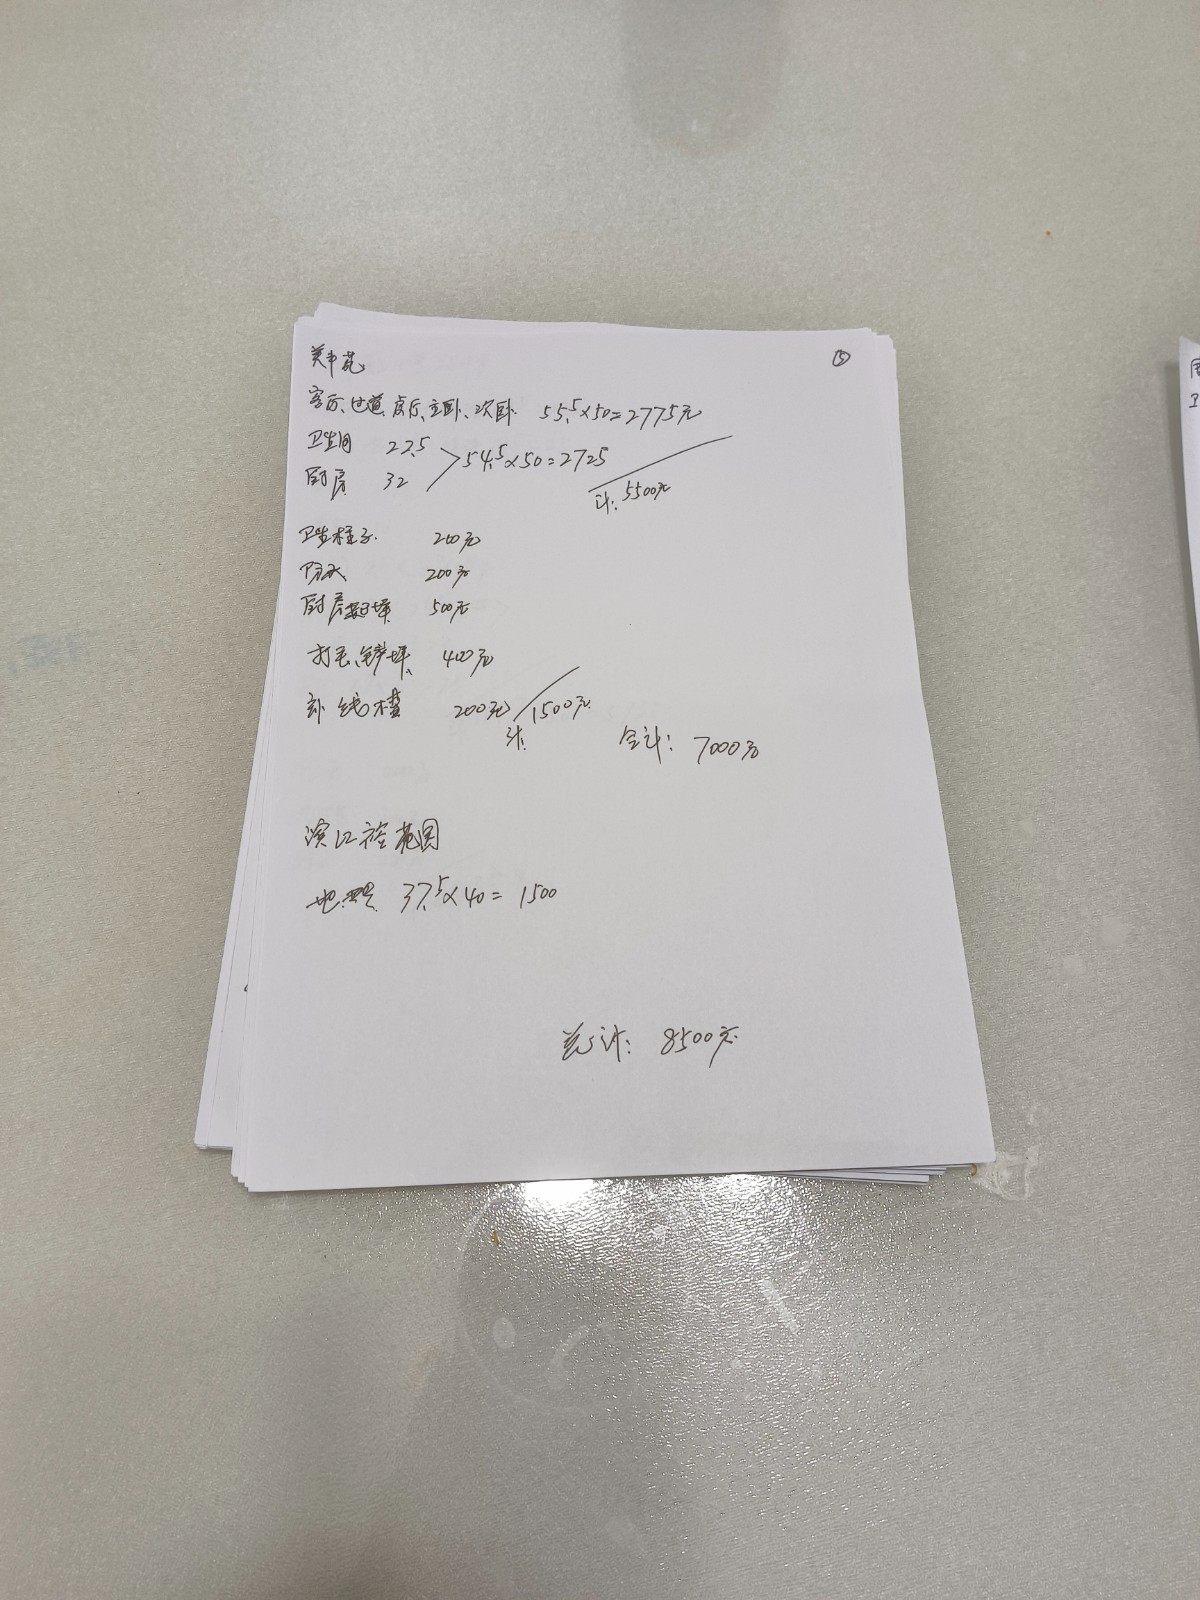 ⑤
客厅、过道、房厅、主卧、次卧. 55.5×50=2775元
卫生间 22.5
54.5×50=2725
厨房 32
计: 5500元
卫生柱子. 200元
防水 200元
厨房 500元
打毛、铲墙 400元
补线槽 200元 1500元
计: 合计: 7000元
滨江裕花园
地面 37.5×40=1500
总计: 8500元